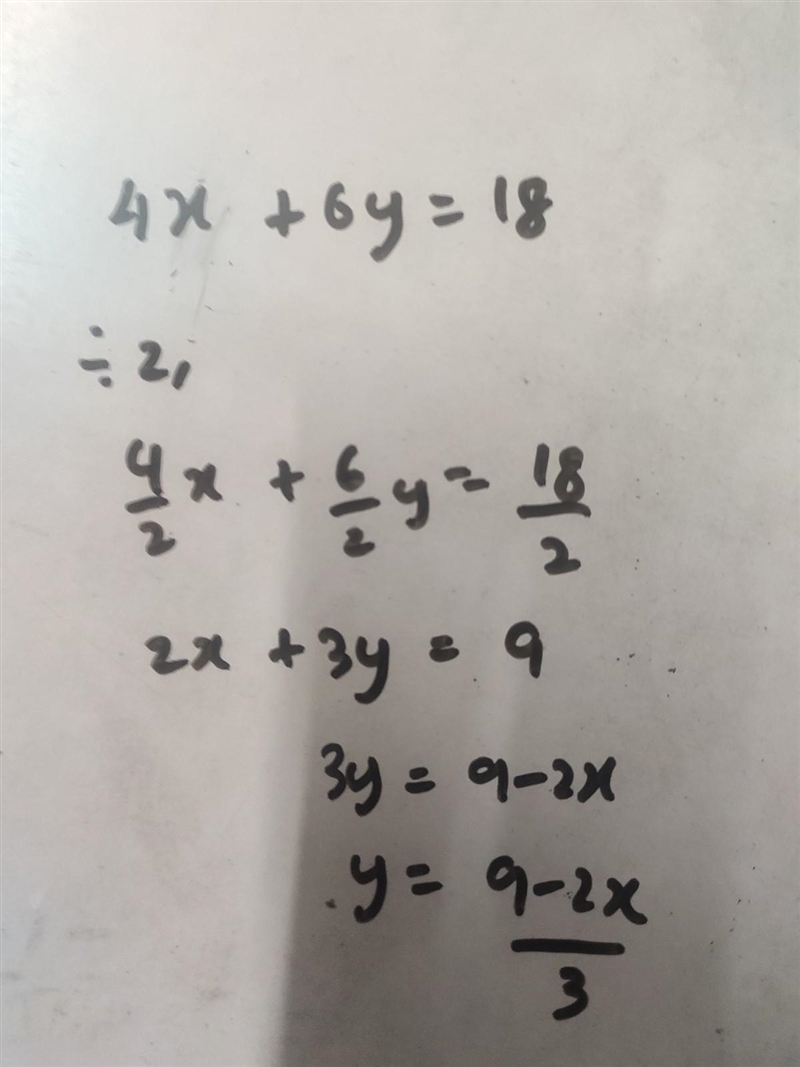 4x + 6y = 18
÷ 2,
4/2 x + 6/2 y = 18/2
2x + 3y = 9
3y = 9 - 2x
y = 9 - 2x / 3